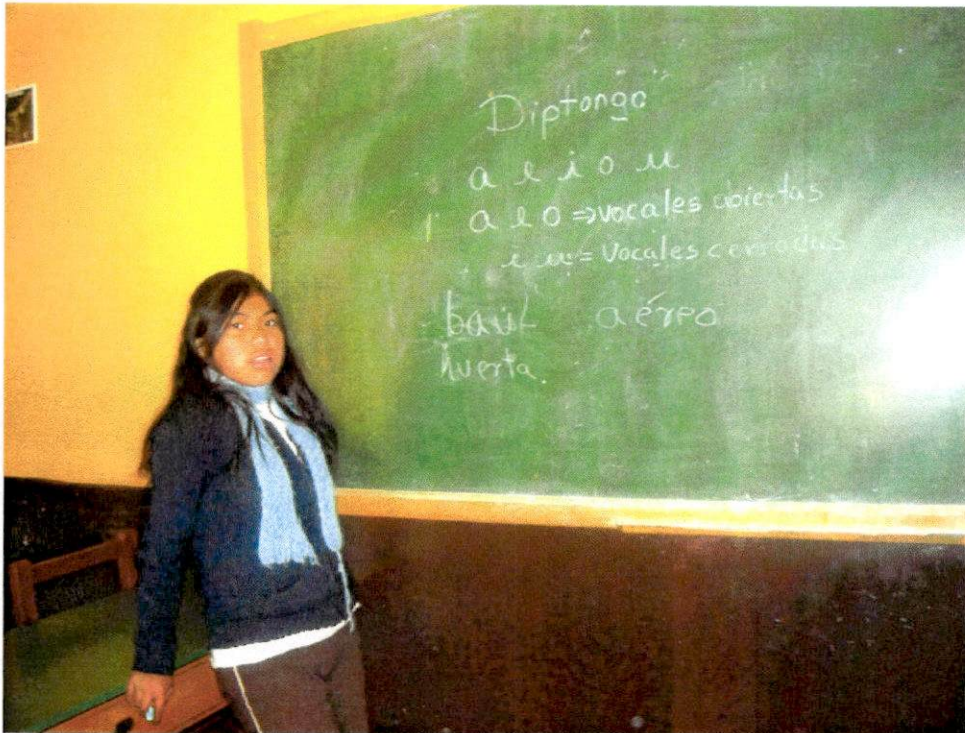 Diptongo
a e i o u
a e o => vocales abiertas
i u = Vocales cerradas
baúl aéreo
huerta.